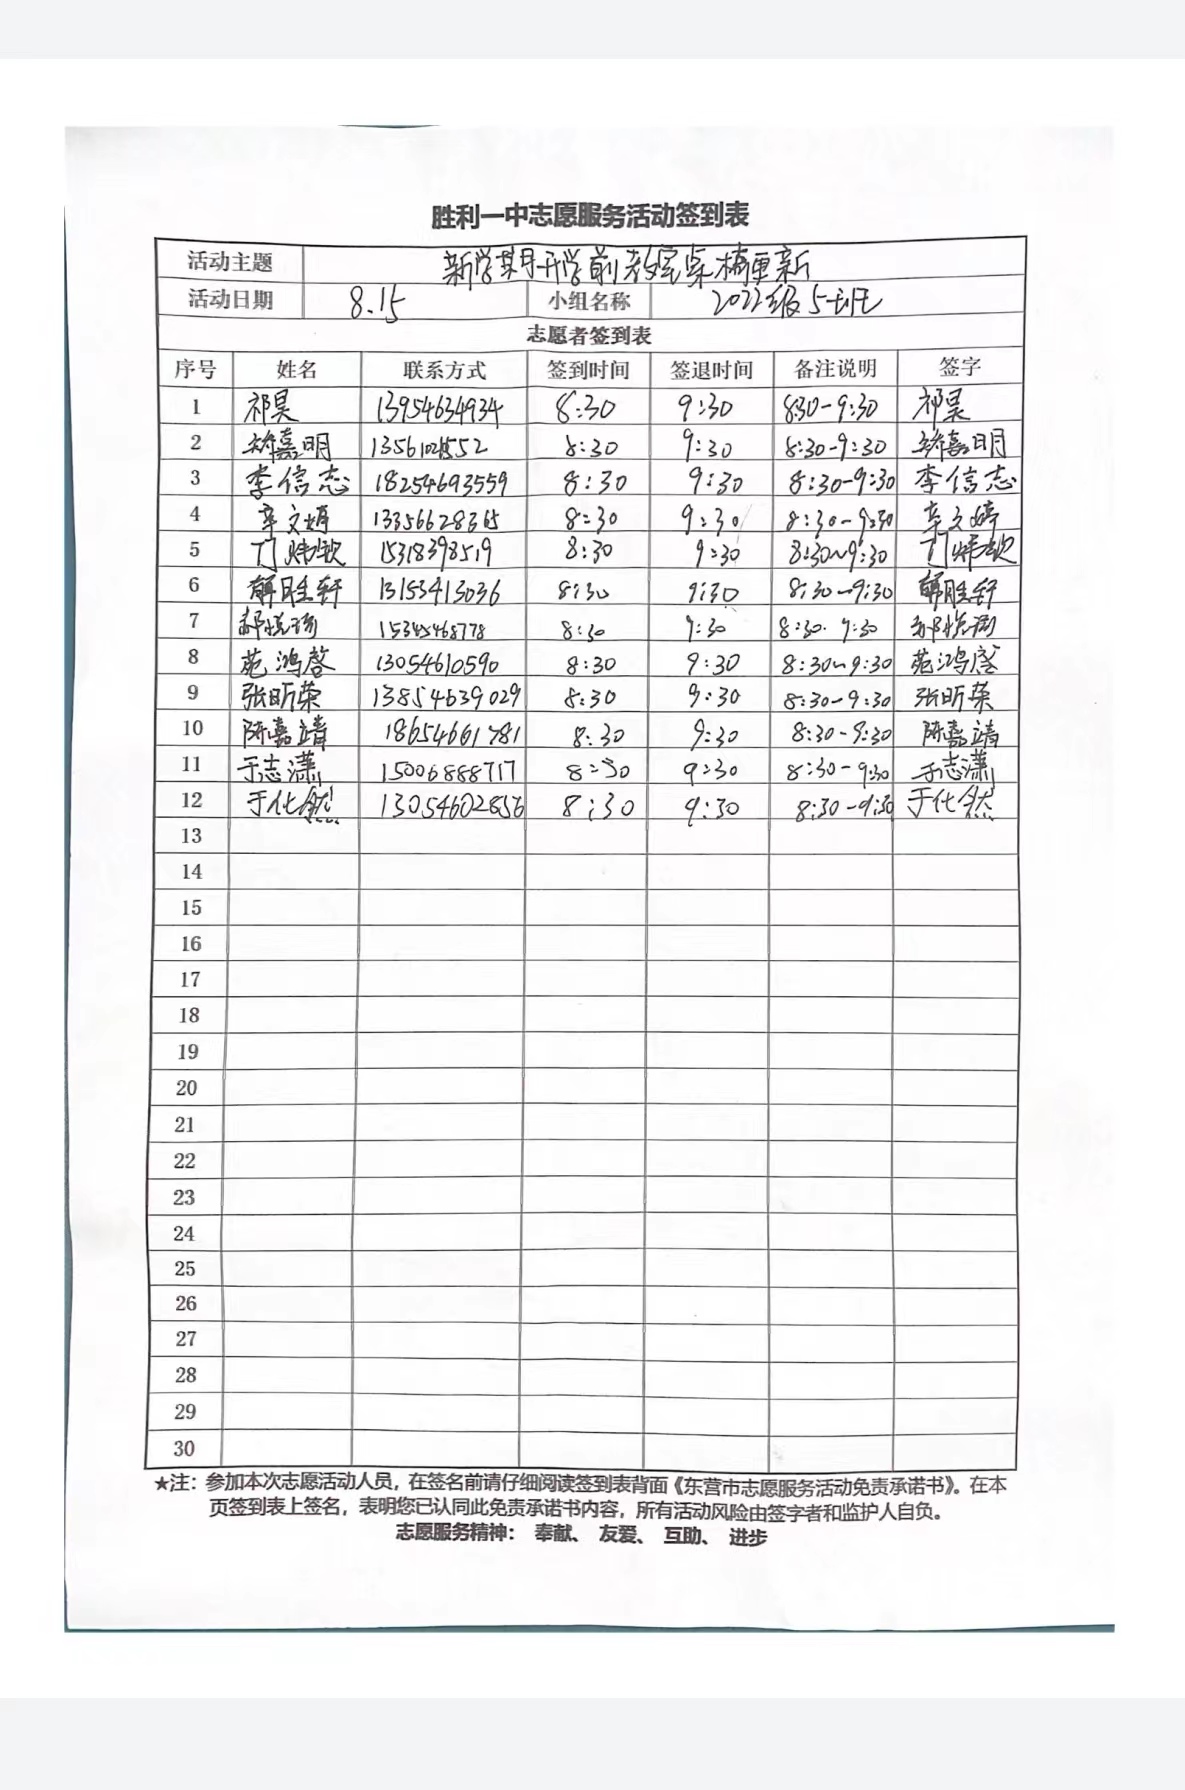 胜利一中志愿服务活动签到表
活动主题 新学期开学前教室桌椅更新
活动日期 8.15 小组名称 2022级5班
志愿者签到表
序号 姓名 联系方式 签到时间 签退时间 备注说明 签字
1 祁昊 13954634934 8:30 9:30 8:30-9:30 祁昊
2 嘉明 8:30 9:30 8:30-9:30 嘉明
3 李信志 18254693559 8:30 9:30 8:30-9:30 李信志
4 辛文婷 13356628365 8:30 9:30 8:30-9:30 辛文婷
5 15318398519 8:30 9:30 8:30~9:30
6 解胜轩 13153413036 8:30 9:30 8:30-9:30 解胜轩
7 15345468778 8:30 9:30 8:30-9:30
8 苑鸿啓 13054610590 8:30 9:30 8:30~9:30 苑鸿啓
9 张昕荣 13854639029 8:30 9:30 8:30-9:30 张昕荣
10 陈嘉靖 18654661781 8:30 9:30 8:30-9:30 陈嘉靖
11 于志潇 15006888717 8:30 9:30 8:30-9:30 于志潇
12 于化然 13054602856 8:30 9:30 8:30-9:30 于化然
13
14
15
16
17
18
19
20
21
22
23
24
25
26
27
28
29
30
★注：参加本次志愿活动人员，在签名前请仔细阅读签到表背面《东营市志愿服务活动免责承诺书》。在本
页签到表上签名，表明您已认同此免责承诺书内容，所有活动风险由签字者和监护人自负。
志愿服务精神： 奉献、 友爱、 互助、 进步